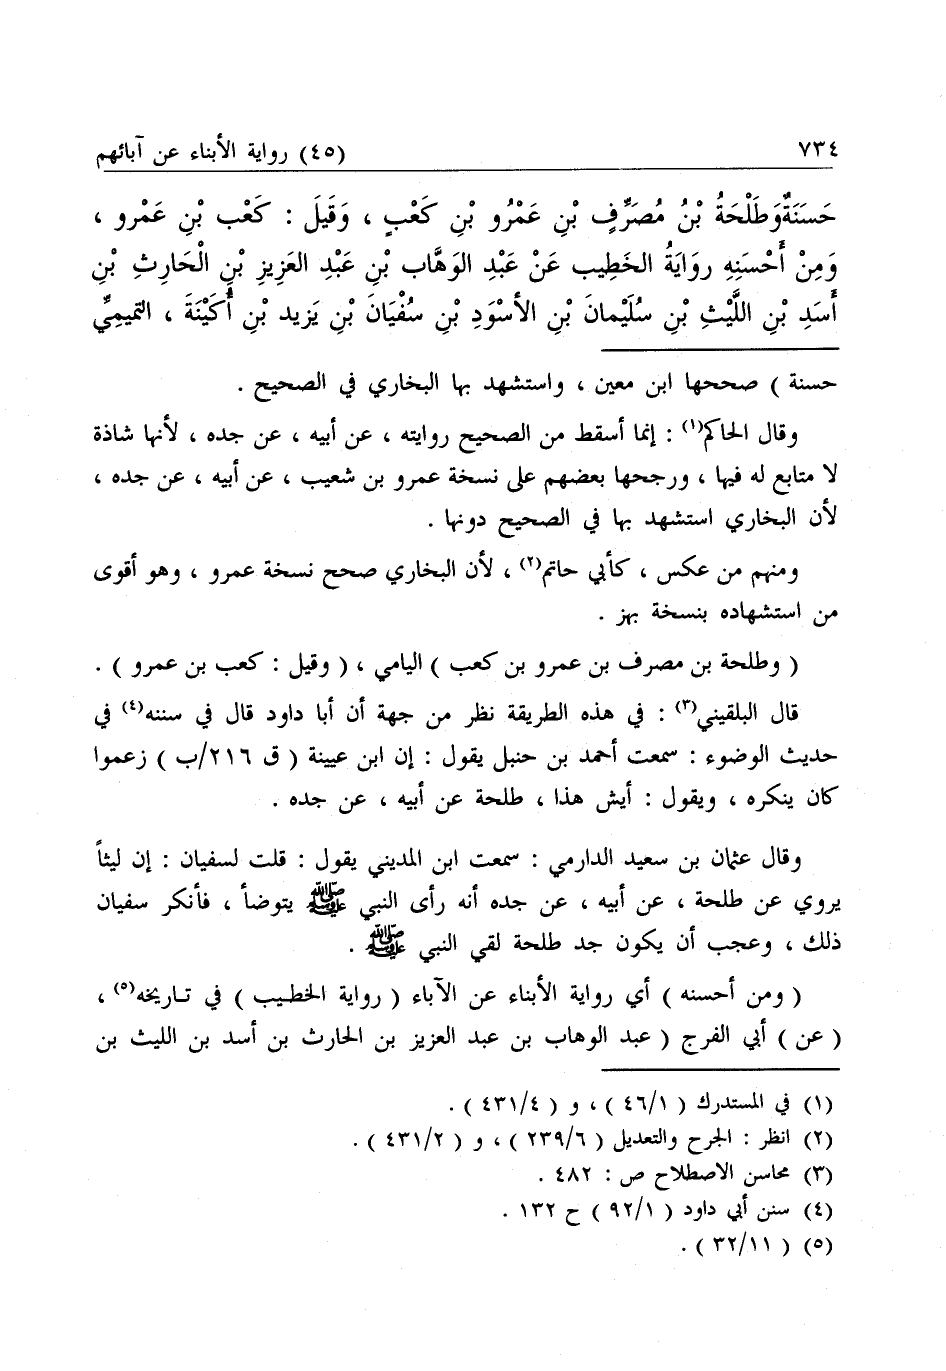 ٧٣٤ (٤٥) رواية الأبناء عن آبائهم
حَسَنَةٌ وَطَلْحَةُ بْنُ مُصَرِّفِ بْنِ عَمْرُو بْنِ كَعْبٍ ، وَقَيلَ : كَعْب بْنِ عَمْرو ،
وَمِنْ أَحْسَنِهِ روَايَةُ الخَطِيب عَنْ عَبْدِ الوَهَّاب بْنِ عَبْدِ العَزِيزِ بْنِ الْحَارِثِ بْنِ
أَسَدِ بْنِ اللَّيْثِ بْنِ سُلَيْمانَ بْنِ الأسْوَدِ بْنِ سُفْيَانَ بْنِ يَزيد بْنِ أُكَيْنَةَ ، التميمِيِّ
حسنة ) صححها ابن معين ، واستشهد بها البخاري في الصحيح .
وقال الحاكم(١) : إنما أسقط من الصحيح روايته ، عن أبيه ، عن جده ، لأنها شاذة
لا متابع له فيها ، ورجحها بعضهم على نسخة عمرو بن شعيب ، عن أبيه ، عن جده ،
لأن البخاري استشهد بها في الصحيح دونها .
ومنهم من عكس ، كأبي حاتم(٢) ، لأن البخاري صحح نسخة عمرو ، وهو أقوى
من استشهاده بنسخة بهز .
( وطلحة بن مصرف بن عمرو بن كعب ) اليامي ، ( وقيل : كعب بن عمرو ) .
قال البلقيني(٣) : في هذه الطريقة نظر من جهة أن أبا داود قال في سننه(٤) في
حديث الوضوء : سمعت أحمد بن حنبل يقول : إن ابن عيينة ( ق ٢١٦/ب ) زعموا
كان ينكره ، ويقول : أيش هذا ، طلحة عن أبيه ، عن جده .
وقال عثمان بن سعيد الدارمي : سمعت ابن المديني يقول : قلت لسفيان : إن ليثاً
يروي عن طلحة ، عن أبيه ، عن جده أنه رأى النبي ﷺ يتوضأ ، فأنكر سفيان
ذلك ، وعجب أن يكون جد طلحة لقي النبي ﷺ .
( ومن أحسنه ) أي رواية الأبناء عن الآباء ( رواية الخطيب ) في تاريخه(٥) ،
( عن ) أبي الفرج ( عبد الوهاب بن عبد العزيز بن الحارث بن أسد بن الليث بن
(١) في المستدرك ( ٤٦/١ ) ، و ( ٤٣١/٤ ) .
(٢) انظر : الجرح والتعديل ( ٢٣٩/٦ ) ، و ( ٤٣١/٢ ) .
(٣) محاسن الاصطلاح ص : ٤٨٢ .
(٤) سنن أبي داود ( ٩٢/١ ) ح ١٣٢ .
(٥) ( ٣٢/١١ ) .